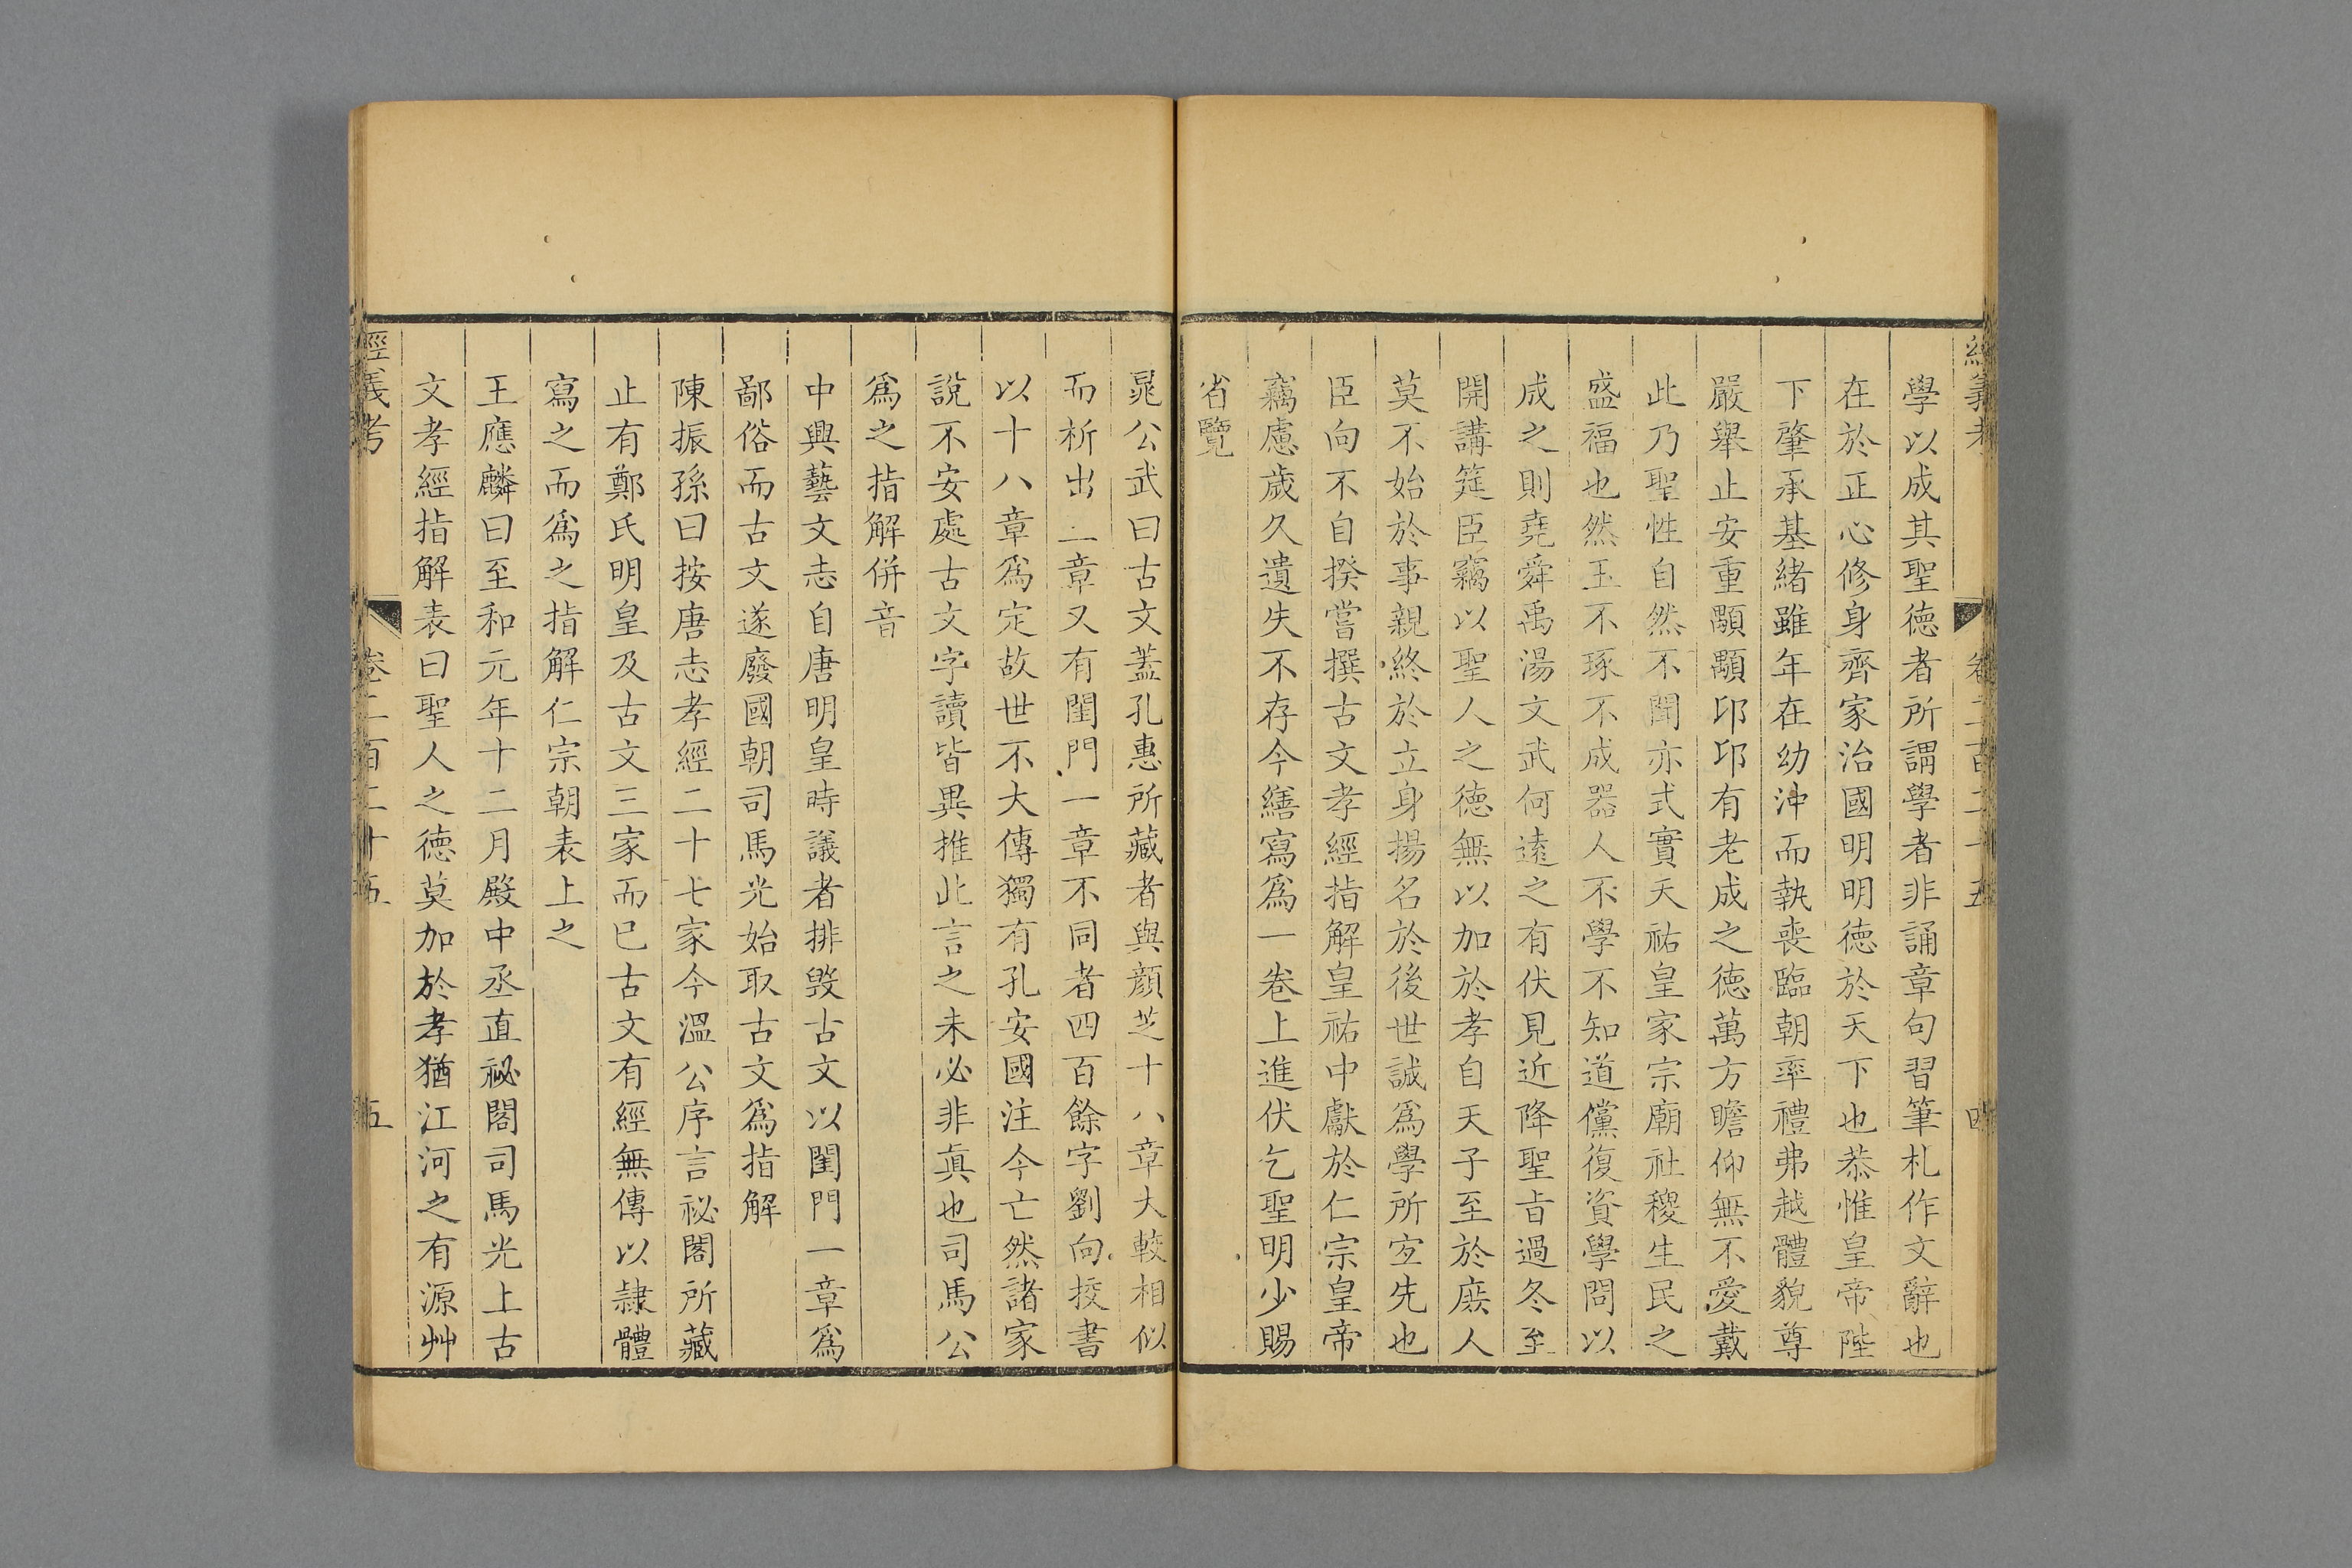 經義考 卷二百二十五 四
學以成其聖德者所謂學者非誦章句習筆札作文辭也
在於正心修身齊家治國明明德於天下也恭惟皇帝陛
下肇承基緒雖年在幼沖而執喪臨朝率禮弗越體貌尊
嚴舉止安重顒顒卬卬有老成之德萬方瞻仰無不愛戴
此乃聖性自然不聞亦式實天祐皇家宗廟社稷生民之
盛福也然玉不琢不成器人不學不知道儻復資學問以
成之則堯舜禹湯文武何遠之有伏見近降聖旨過冬至
開講筵臣竊以聖人之德無以加於孝自天子至於庶人
莫不始於事親終於立身揚名於後世誠為學所宜先也
臣向不自揆嘗撰古文孝經指解皇祐中獻於仁宗皇帝
竊慮歲久遺失不存今繕寫爲一卷上進伏乞聖明少賜
省覽
晁公武曰古文蓋孔惠所藏者與顏芝十八章大較相似
而析出二章又有閨門一章不同者四百餘字劉向挍書
以十八章爲定故世不大傳獨有孔安國注今亡然諸家
說不安處古文字讀皆異推此言之未必非眞也司馬公
爲之指解併音
中興藝文志自唐明皇時議者排毀古文以閨門一章爲
鄙俗而古文遂廢國朝司馬光始取古文爲指解
陳振孫曰按唐志孝經二十七家今溫公序言祕閣所藏
止有鄭氏明皇及古文三家而已古文有經無傳以隷體
寫之而爲之指解仁宗朝表上之
王應麟曰至和元年十二月殿中丞直祕閣司馬光上古
文孝經指解表曰聖人之德莫加於孝猶江河之有源艸
經義考 卷二百二十五 五